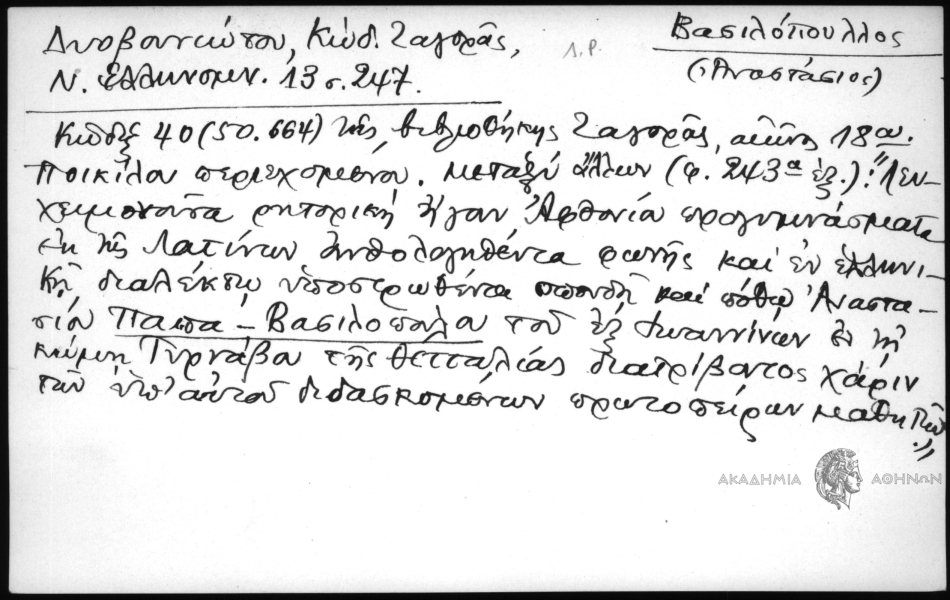 Δυοβουνιώτου, Κώδ. Ζαγορᾶς,
Ν. Ἑλληνομν. 13 σ. 247.
Λ.Ρ.
Βασιλόπουλλος
(Ἀναστάσιος)
Κῶδιξ 40 (50.664) τῆς βιβλιοθήκης Ζαγορᾶς, αἰῶνος 18ου.
Ποικίλου περιεχομένου. Μεταξὺ ἄλλων (φ. 243α ἑξ.): "Λευ-
χειμονοῦσα ρητορικὴ ἤγουν Ἀφθονίου προγυμνάσματα
ἐκ τῆς Λατίνων ἀνθολογηθέντα φωνῆς καὶ ἐν ἑλληνι-
κῇ διαλέκτῳ ὑποστρωθέντα σπουδῇ καὶ πόθῳ Ἀναστα-
σίου Παπᾶ-Βασιλοπούλου τοῦ ἐξ Ἰωαννίνων ἐν τῇ
κώμῃ Τυρνάβου τῆς Θετταλίας διατρίβοντος χάριν
τῶν ὑπ' αὐτοῦ διδασκομένων πρωτοπείρων μαθητῶν."
ΑΚΑΔΗΜΙΑ ΑΘΗΝΩΝ